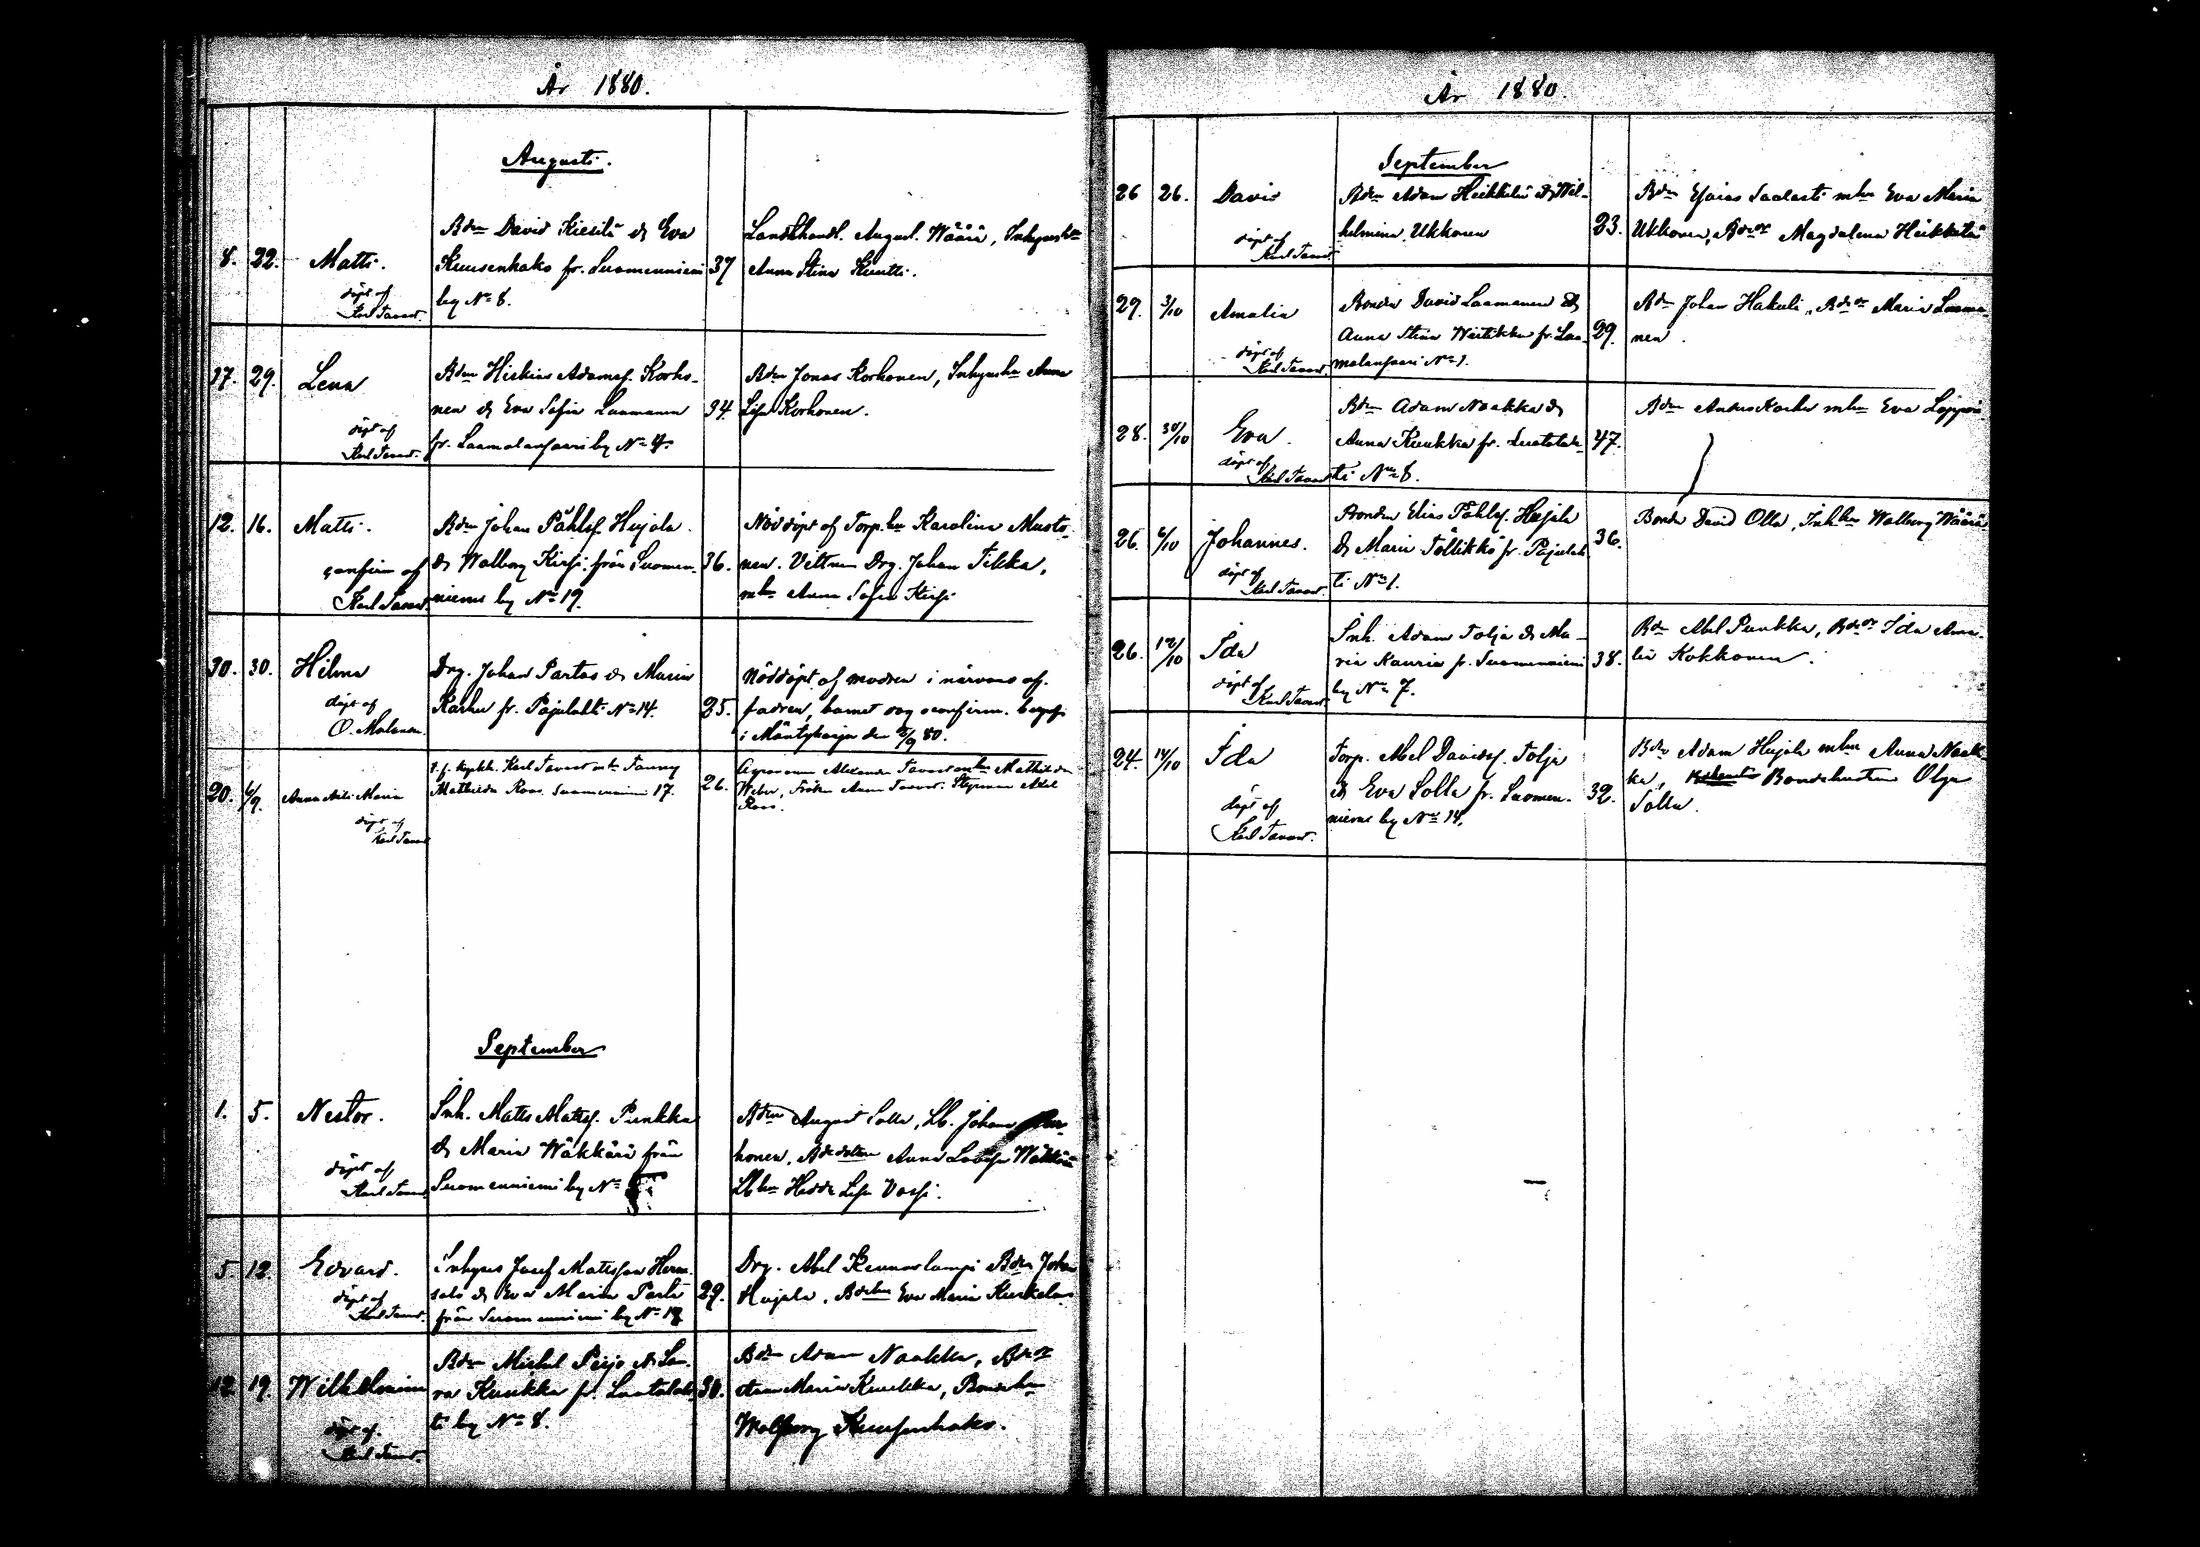 År 1880.
Augusti.
8. 22. Matti.
döpt af
Karl Tavast.
Bdn David Kiesilä & Eva
Kuusenhako fr. Suomenniemi
by No 8.
37
Landthandl. August Wäärä, Inhyseshn
Anna Stina Kuutti.
17. 29. Lena
döpt af
Karl Tavast.
Bdn Hiskias Adamsf. Korho-
nen & Eva Sofia Laamanen
fr. Laamalansaari by No 4.
34.
Bdn Jonas Korhonen, Inhyseshn Anna
Lisa Korhonen.
12. 16. Matti.
confirm af
Karl Tavast.
Bdn Johan Påhlsf. Hujala
& Walborg Kirsi från Suomen-
niemi by No 19.
36.
Nöddöpt af Torp.hu Karolina Musto-
nen. Vittnen Drg. Johan Tikka,
mhu Anna Sofia Kirsi
30. 30. Hilma
döpt af
O. Molander.
Drg. Johan Partas & Maria
Karhu fr. Pajulahti No 14.
25.
Nöddöpt af modren i närvaro af
fadren, barnet dog oconfirm. begrofs
i Mäntyharju den 5/9 80.
20. 6/9. Anna Aili Maria
döpt af
Karl Tavast
t.f. kapln. Karl Tavast mhu Fanny
Mathilda Roos. Suomenniemi 17.
26.
Agronomen Alexander Tavast mhu Mathilda
Weber, Fröken Anna Tavast. Styrman Axel
Roos.
September
1. 5. Nestor.
döpt af
Karl Tavast
Inh. Matts Mattsf. Punkka
& Maria Wäkkärä från
Suomenniemi by No
Bdn August Solla, Lb. Johan
honen, Bdedottern Anna Lovisa Wäkkärä
Lbhu Hedda Lisa Vossi.
5. 12. Edvard.
döpt af
Karl Tavast.
Inhyses Josef Mattsson Herra-
sala & Eva Maria Parta
från Suomenniemi by No 19
29.
Drg. Abel Rennoslampi Bdn Johan
Hujala, Bdehu Eva Maria Kurkela
12. 19. Wilhelmina
döpt af
Karl Tavast.
Bdn Michel Peijo & Sa-
ra Kuukka fr. Luotolah-
ti by No 8.
30.
Bdn Adam Naakka, Bdor
Anna Maria Kuukka, Bondehu
Walborg Kuusenhako.
År 1880.
September
26 26. David
döpt af
Karl Tavast.
Bdn Adam Heikkilä & Wil-
helmina Ukkonen
23.
Bdn Esaias Saalasti mhu Eva Maria
Ukkonen, Bdor Magdalena Heikkilä
27. 3/10 Amalia
döpt af
Karl Tavast.
Bonden David Laamanen &
Anna Stina Wirtikko fr. Laa-
malansaari No 1.
29.
Bdn Johan Hakuli, Bdor Maria Laama-
nen.
28. 30/10 Eva.
döpt af
Karl Tavast
Bdn Adam Naakka &
Anna Kuukka fr. Luotolah-
ti No 8.
47.
Bdn Anders Karhu mhu Eva Löppönen
26. 6/10 Johannes.
döpt af
Karl Tavast.
Bonden Elias Påhlsf. Hujala
& Maria Töllikkö fr. Pajulah
ti No 1.
36.
Bonden David Olla, Inh.hu Walborg Wäärä
26. 12/10 Ida
döpt af
Karl Tavast
Inh. Adam Tolja & Ma-
ria Kauria fr. Suomenniemi
by No 7.
38.
Bdn Abel Punkka, Bdor Ida Ama-
lia Kokkonen.
24. 14/10 Ida
döpt af
Karl Tavast.
Torp. Abel Davidsf. Tolja
& Eva Solla fr. Suomen-
niemi by No 14.
32.
Bdn Adam Hujala mhu Anna Naak-
ka, Bondehustru Olga
Solla.